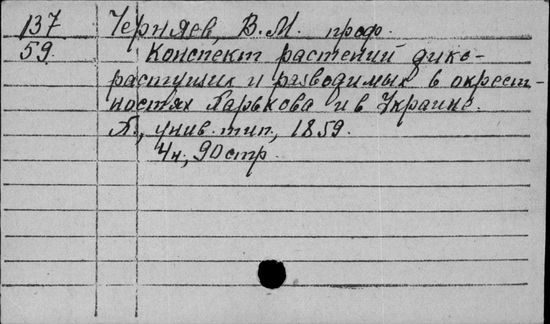 137 Черняев, В. М. проф.
59. Конспект растений дико-
растущих и разводимых в окрест-
ностях Харькова и в Украине.
Х., унив. тип., 1859.
4н., 90 стр.